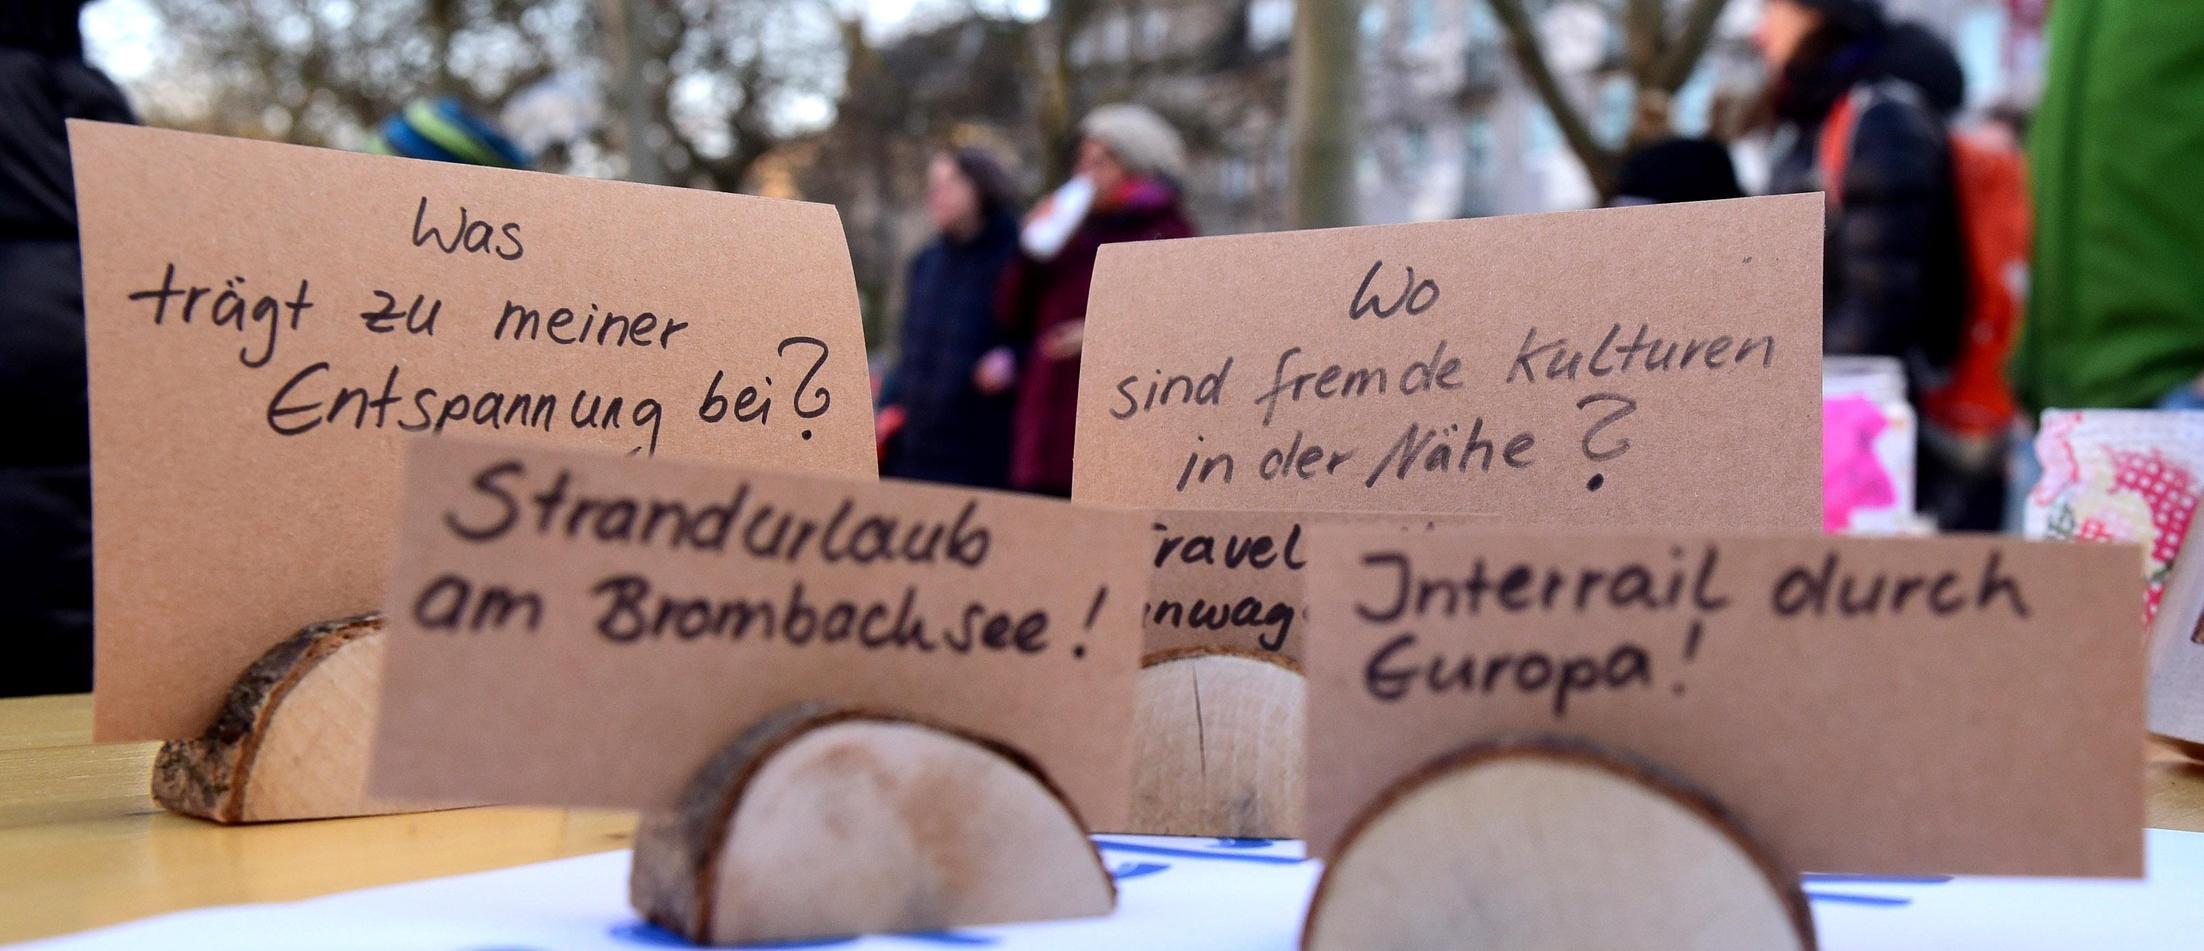 Was
trägt zu meiner
Entspannung bei?
Wo
sind fremde Kulturen
in der Nähe?
Strandurlaub
am Brombachsee!
Interrail durch
Europa!